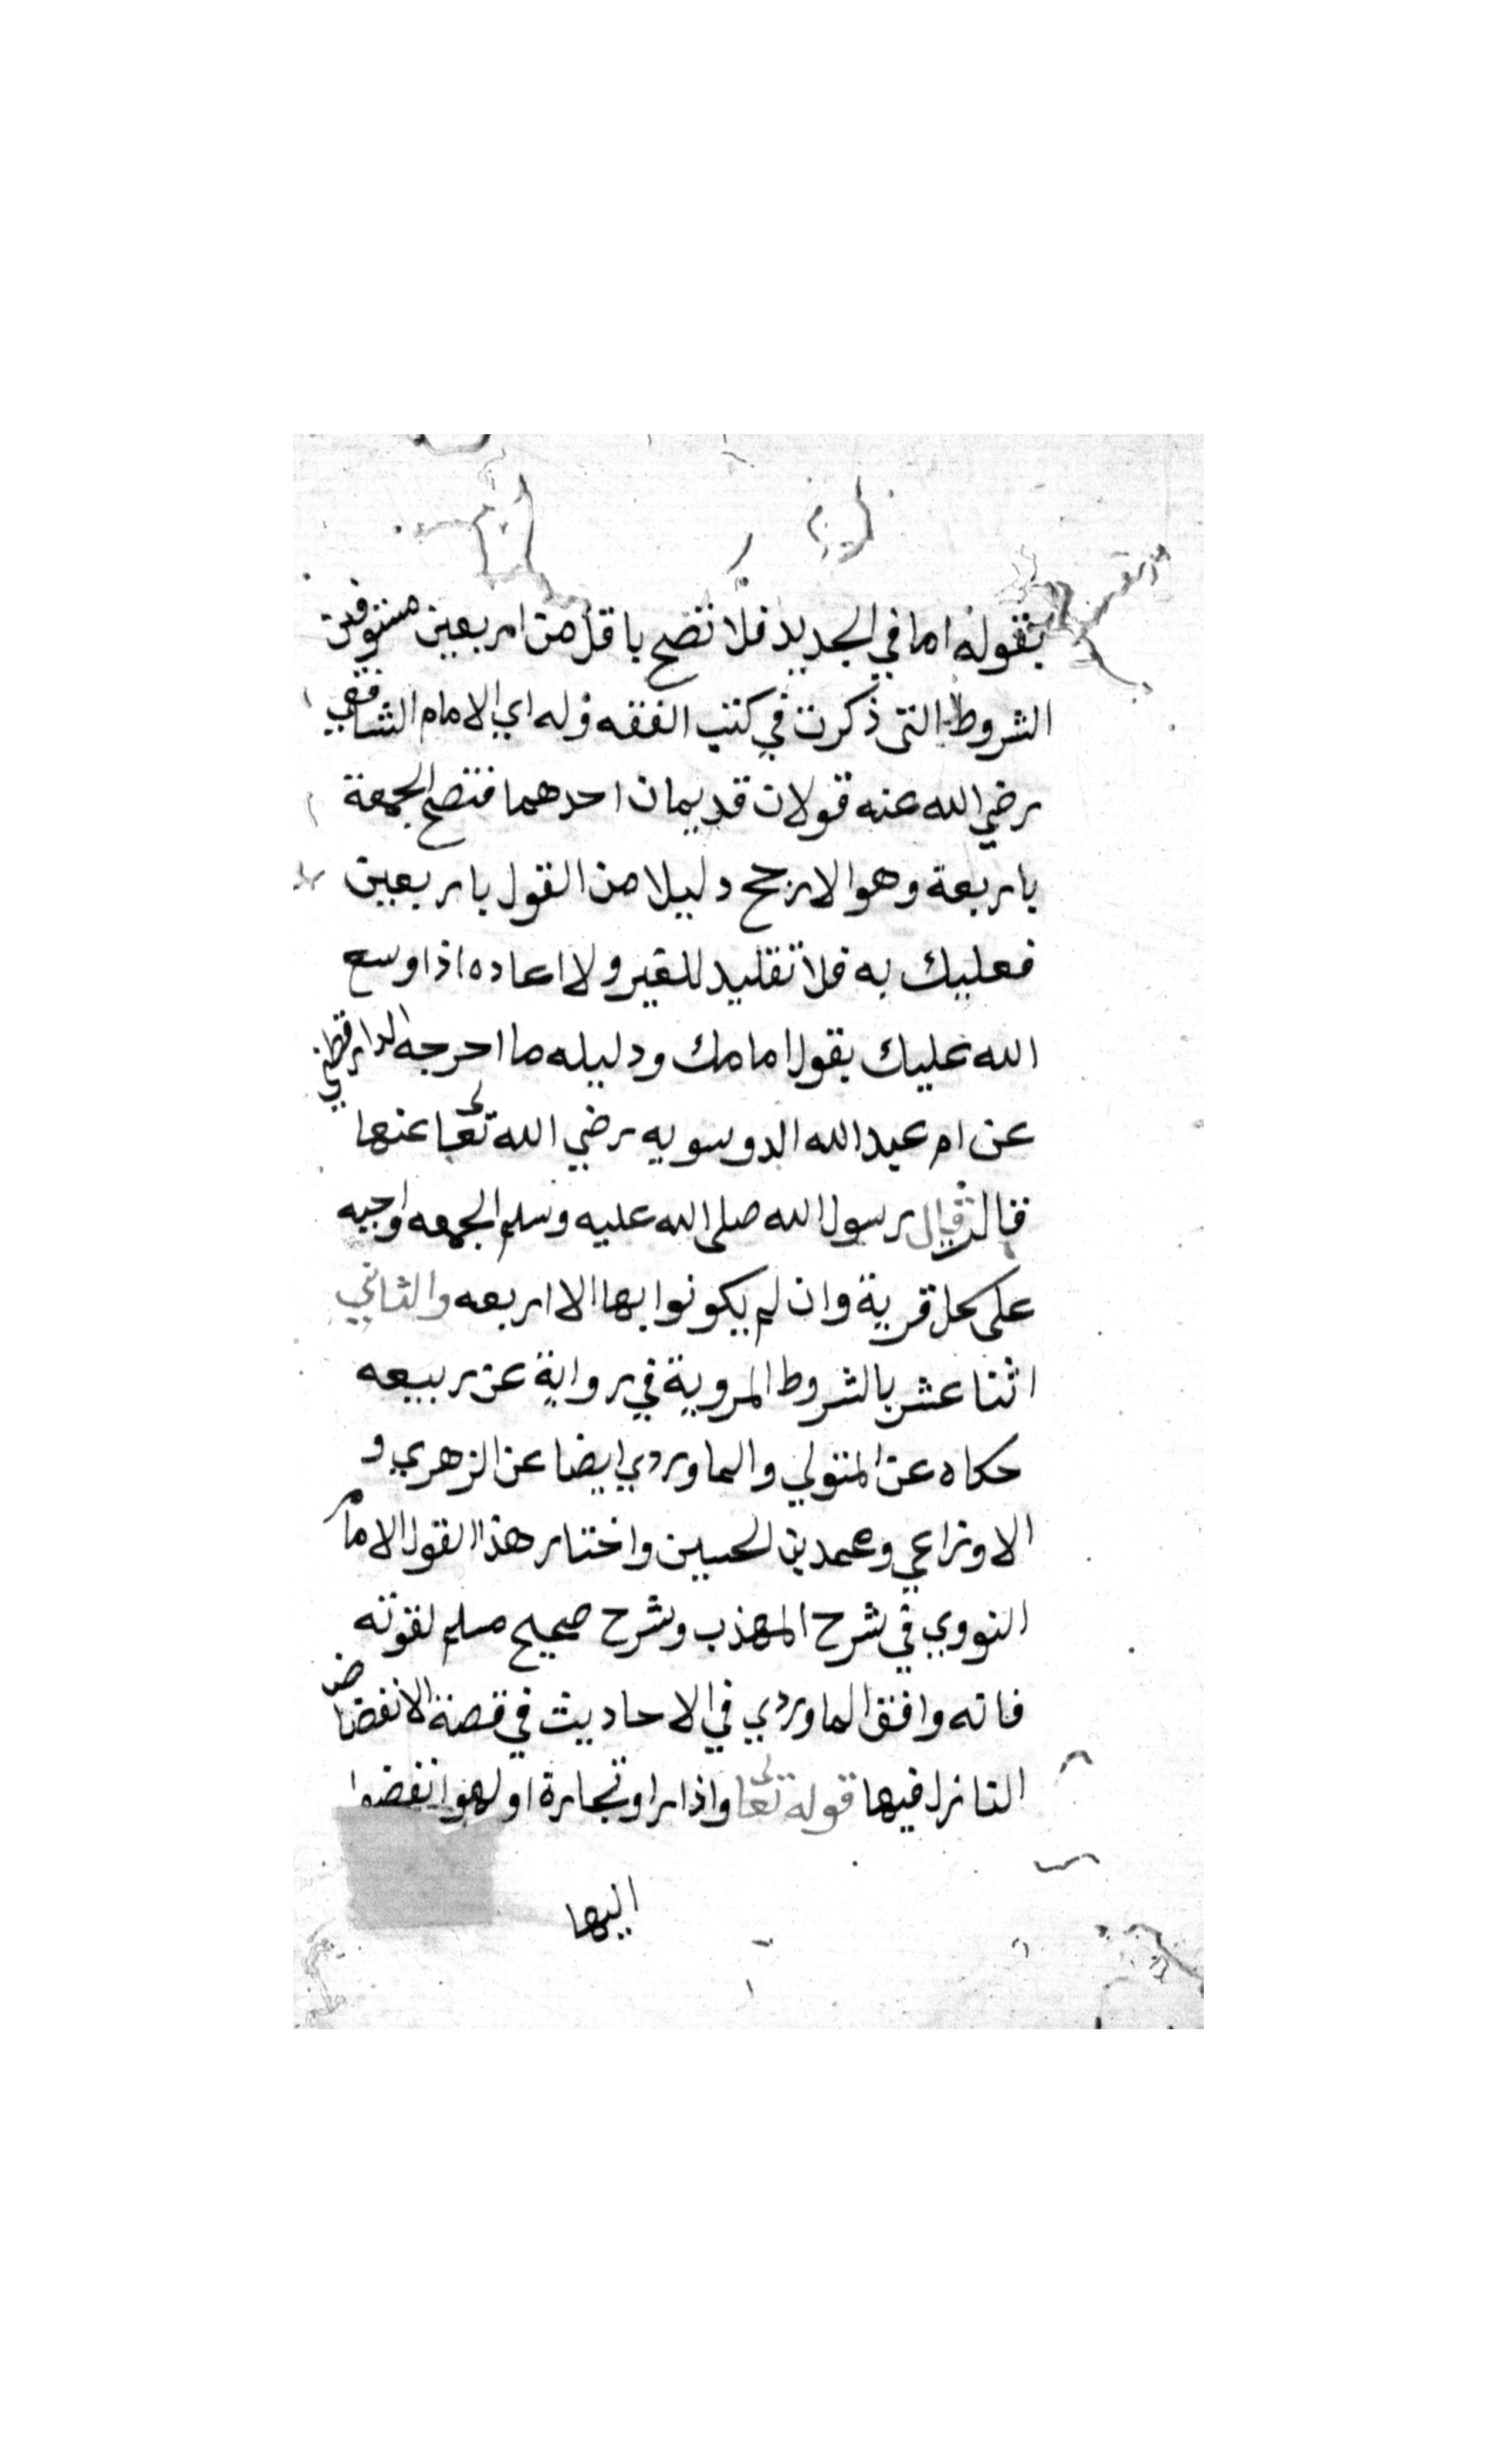 بقوله اما في الجديد فلا تصح باقل من اربعين مستوفين
الشروط التي ذكرت في كتب الفقه وله اي الامام الشافعي
رضي الله عنه قولان قديمان احدهما فتصح الجمعة
باربعة وهو الارجح دليلا من القول باربعين
فعليك به فلا تقليد للغير ولا اعاده اذا وسع
الله عليك بقول امامك ودليله ما احرجه الدارقطني
عن ام عبد الله الدوسويه رضي الله تعالى عنها
قالت قال رسول الله صلى الله عليه وسلم الجمعه واجبه
على كل قرية وان لم يكونوا بها الا اربعه والثاني
اثنا عشر بالشروط المروية في رواية عن ربيعه
حكاه عن المتولي والماوردي ايضا عن الزهري و
الاوزاعي ومحمد بن الحسين واختار هذا القول الامام
النووي في شرح المهذب وشرح صحيح مسلم لقوته
فانه وافق الماوردي في الاحاديث في قصة الانفضاض
النازل فيها قوله تعالى واذا راو تجارة او لهوا انفضوا
اليها